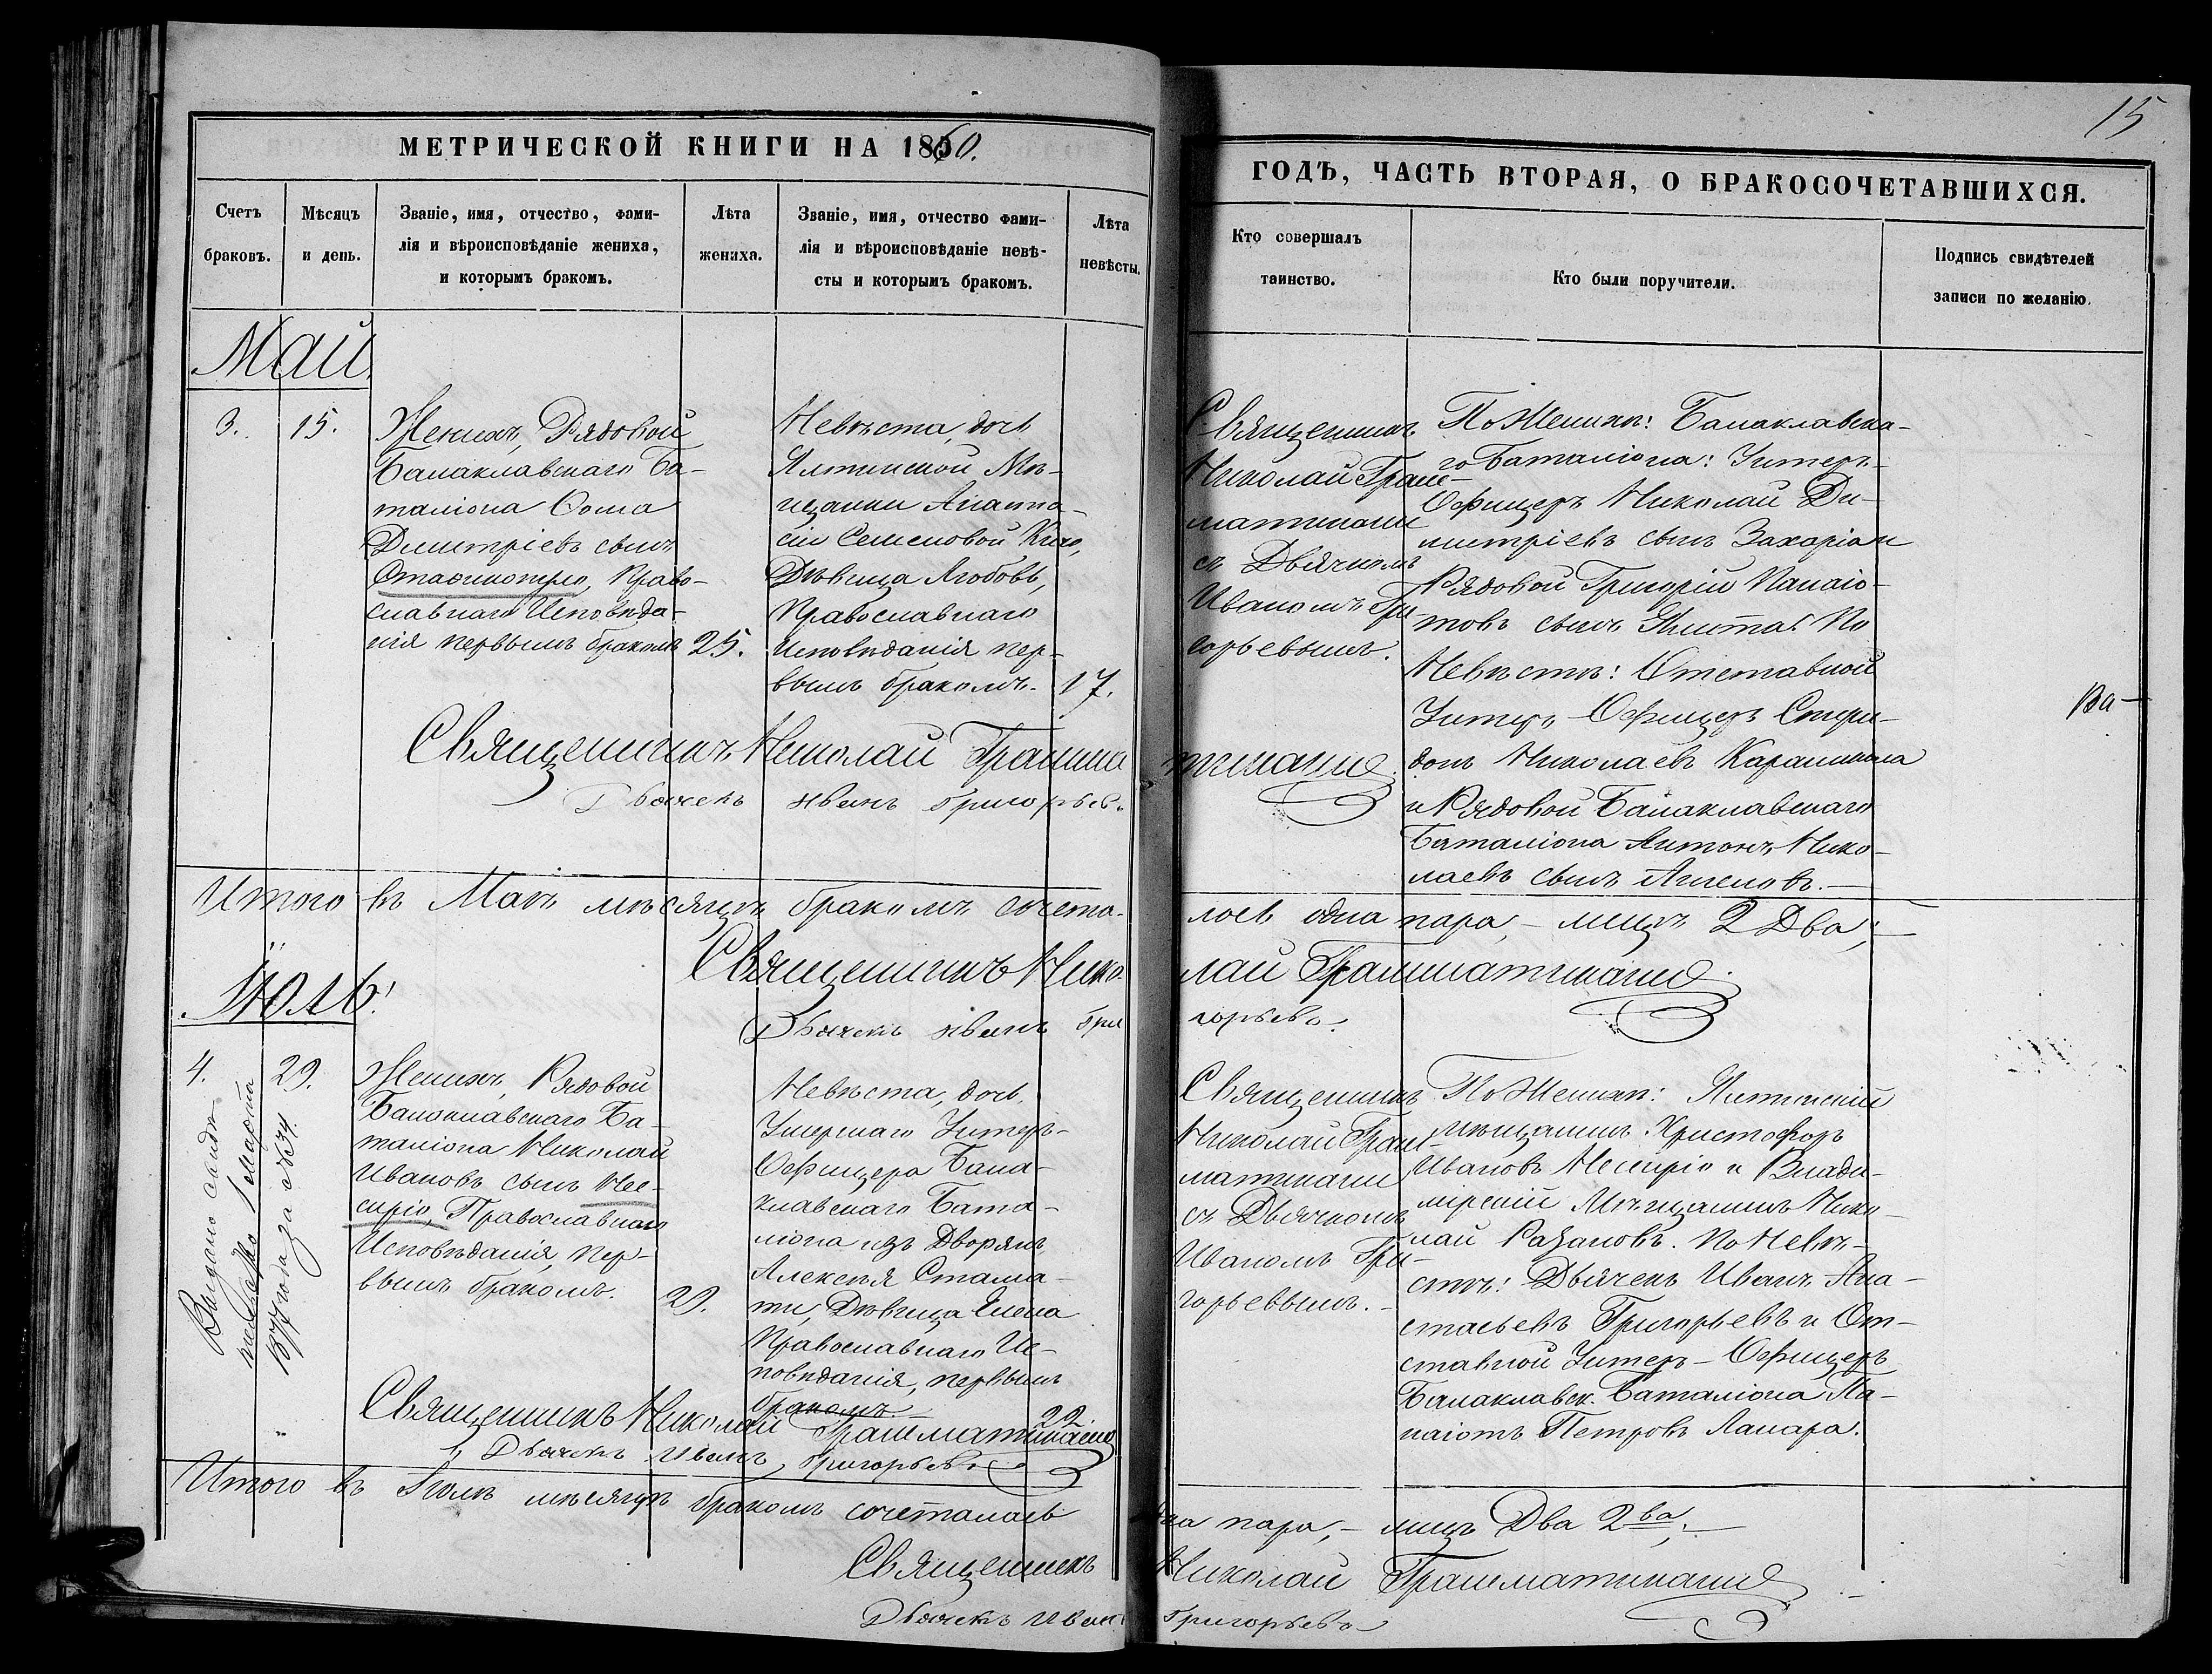 15
МЕТРИЧЕСКОЙ КНИГИ НА 1860.
ГОДЪ, ЧАСТЬ ВТОРАЯ, О БРАКОСОЧЕТАВШИХСЯ.
Счетъ
браковъ.
Мѣсяцъ
и день.
Званіе, имя, отчество, фами-
лія и вѣроисповѣданіе жениха,
и которымъ бракомъ.
Лѣта
жениха.
Званіе, имя, отчество фами-
лія и вѣроисповѣданіе невѣ-
сты и которымъ бракомъ.
Лѣта
невѣсты.
Кто совершалъ
таинство.
Кто были поручители.
Подпись свидѣтелей
записи по желанію.
Май.
3.
15.
Женихъ, Рядовой
Балаклавскаго Ба-
таліона Ѳома
Димитріевъ сынъ
Православнаго Исповѣда-
нія первымъ бракомъ
25.
Невѣста, дочь
Ялтинской Мѣ-
щанки Анаста-
сіи Семеновой
Дѣвица Любовь,
Православнаго
Исповѣданія пер-
вымъ бракомъ.
17.
Священникъ
Николай Грам-
матикати
съ Двячкомъ
Иваномъ Гри-
горьевымъ.
По Женихѣ: Балаклавска-
го Баталіона: Унтеръ-
Офицеръ Николай Ди-
митріевъ сынъ
Рядовой Григорій Панаіо-
товъ сынъ По
Невѣстѣ: Отставной
Унтеръ-Офицеръ Спири-
донъ Николаевъ
и Рядовой Балаклавскаго
Баталіона Антонъ Нико-
лаевъ сынъ
Ва-
Священникъ Николай Граммa
тикати
Двячекъ Иванъ Григорьевъ
Итого въ Маѣ мѣсяцѣ бракомъ сочета-
лось одна пара, - лицъ 2 Два,
Священникъ Нико
лай Грамматикати
Двячекъ Иванъ Гри
горьевъ.
Іюль!
4.
29.
Выдано
1877 года за №34.
Женихъ, Рядовой
Балаклавскаго Ба-
таліона Николай
Ивановъ сынъ
Православнаго
Исповѣданія, пер-
вымъ бракомъ.
29.
Невѣста, дочь
Умершаго Унтеръ-
Офицера Бала-
клавскаго Бата-
ліона изъ Дворянъ
Алексѣя Стама-
ти, Дѣвица Елена
Православнаго Ис-
повѣданія, первымъ
бракомъ.
22.
Священникъ
Николай Грам-
матикати
съ Двячкомъ
Иваномъ Гри-
горьевымъ.
По Женихѣ: Ялтинскій
мѣщанинъ Христофоръ
Ивановъ и Влади-
мірскій Мѣщанинъ Нико-
лай Разановъ. По Невѣ-
стѣ: Двячекъ Иванъ Ана-
стасьевъ Григорьевъ и От-
ставной Унтеръ-Офицеръ
Балаклавск. Баталіона Па-
наіотъ Петровъ
Священникъ Николай Грамматикати
Двячекъ Иванъ Григорьевъ
Итого въ Іюлѣ мѣсяцѣ бракомъ сочеталась
одна пара, - лицъ Два 2ва,
Священникъ
Николай Грамматикати
Двячекъ Иванъ
Григорьевъ